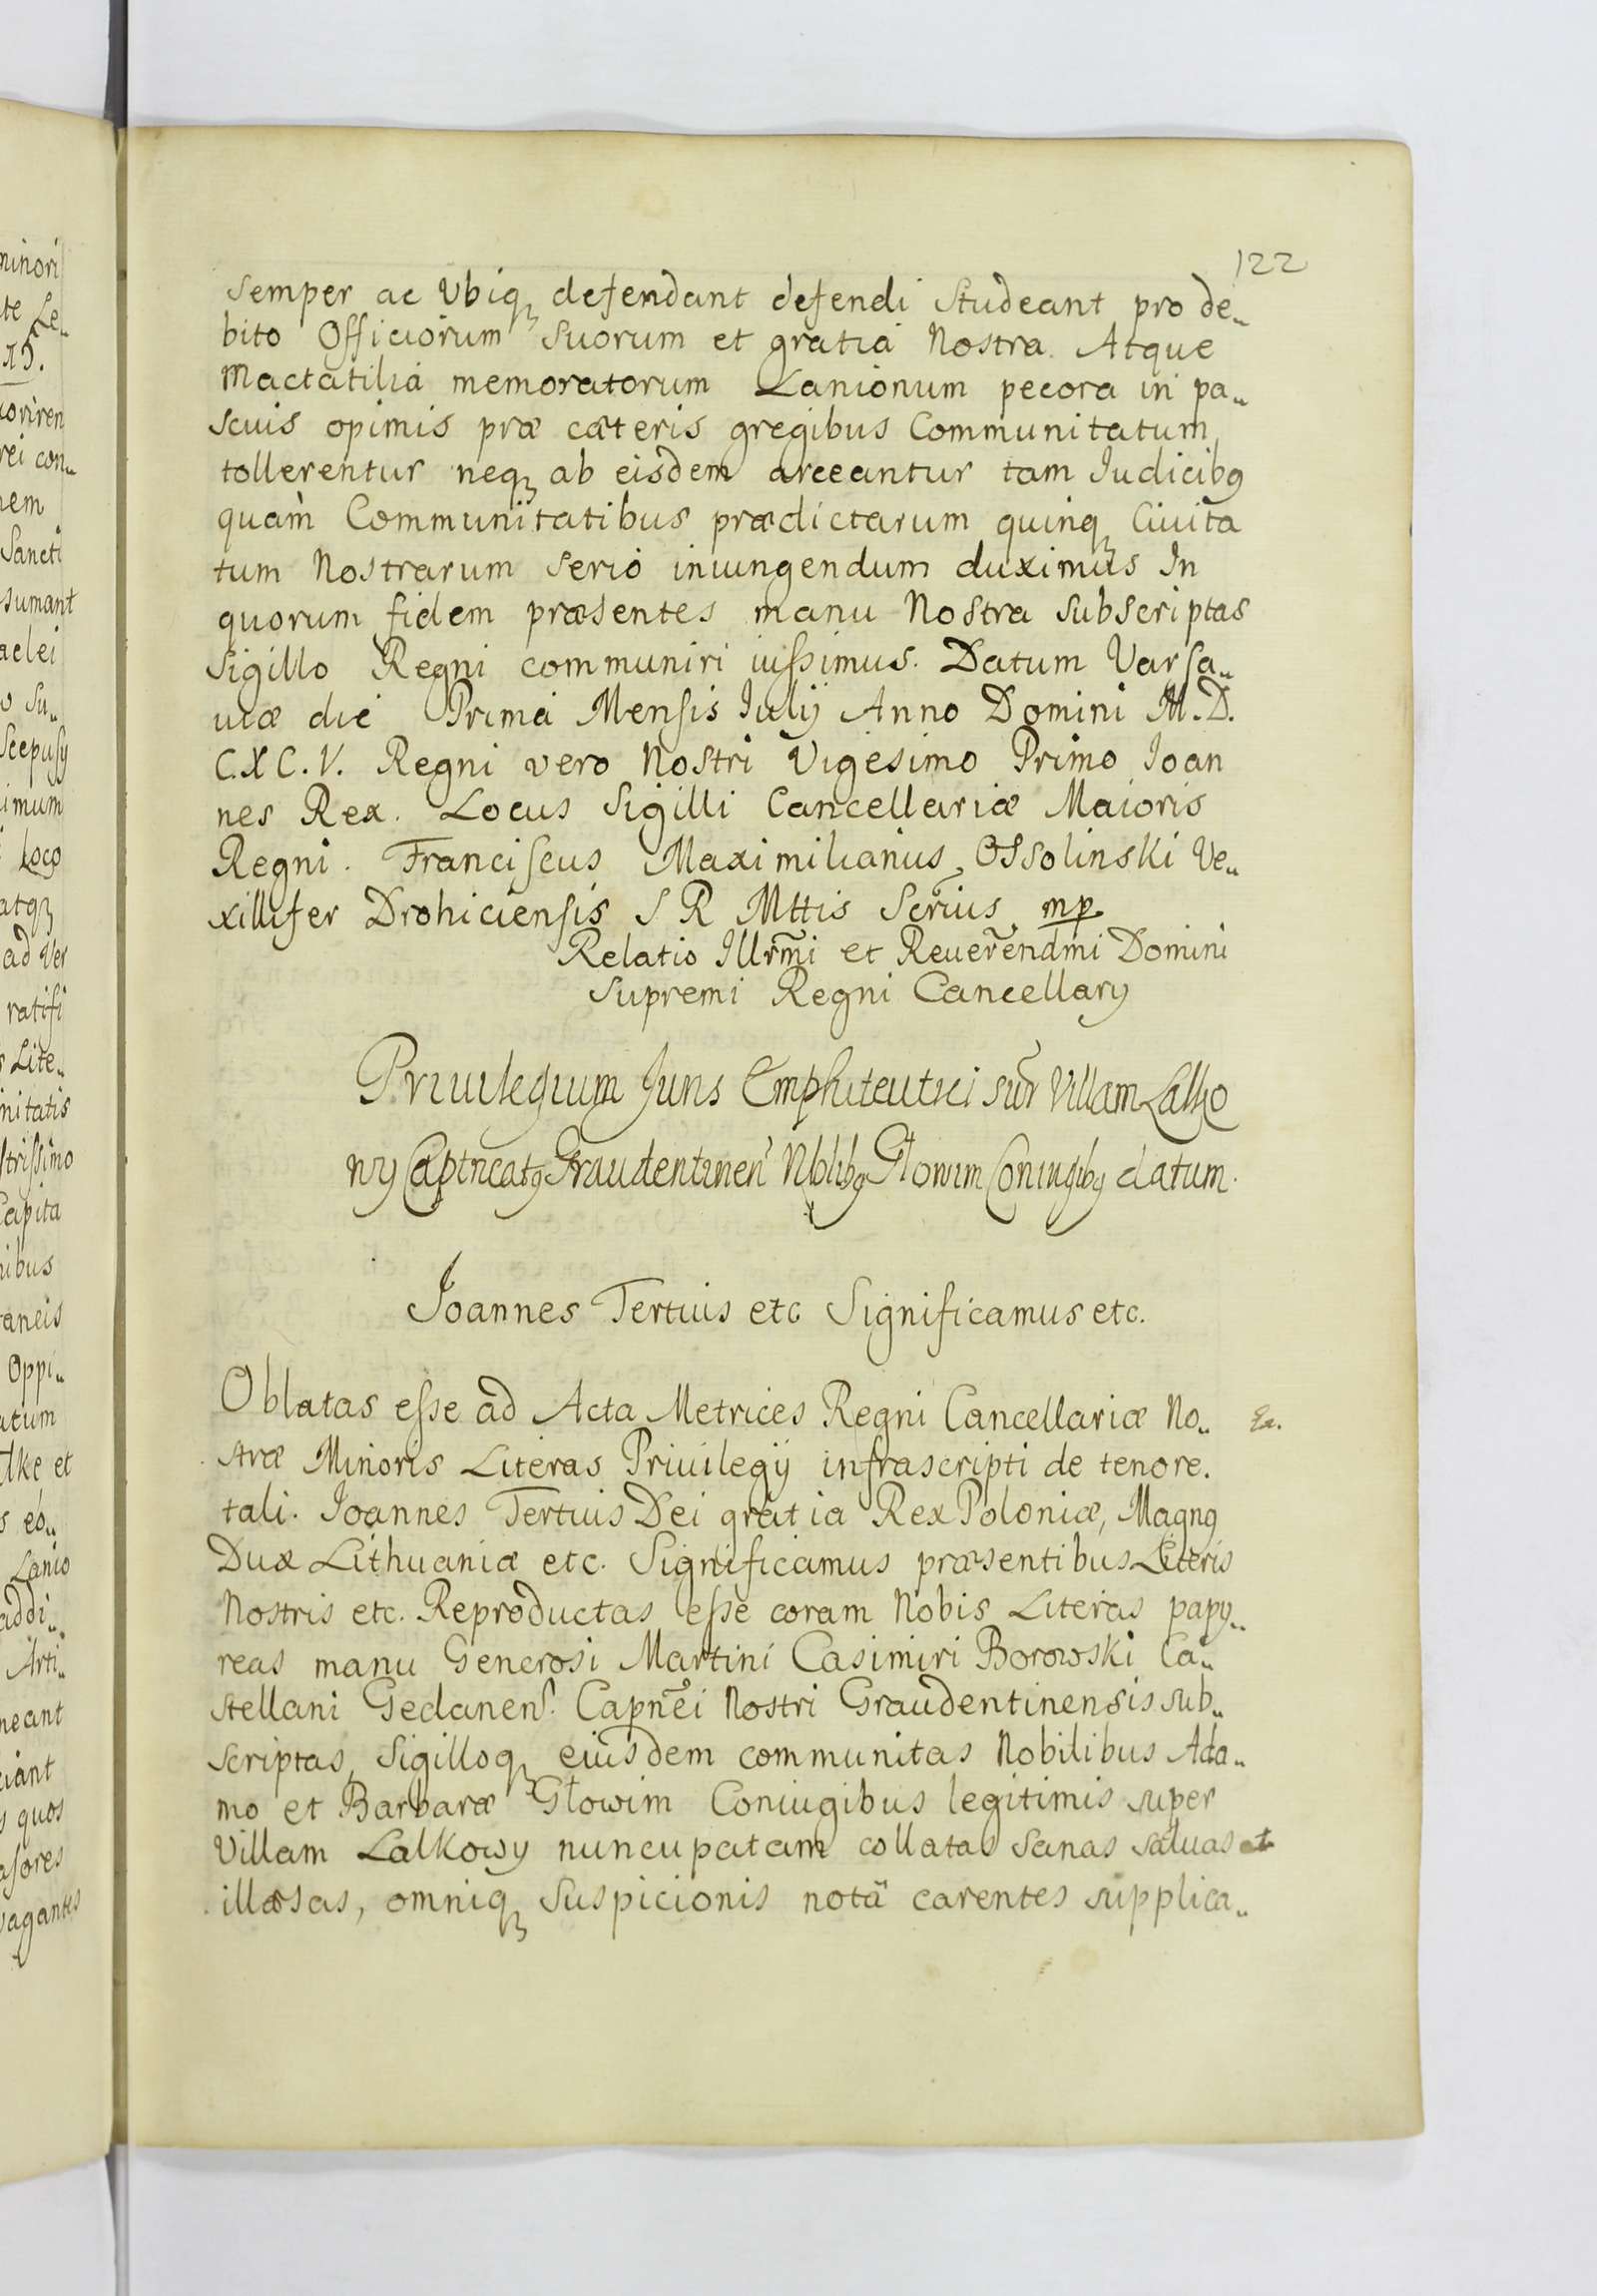 122
semper ac Ubiq defendant defendi studeant pro de„
bito Officiorum suorum et gratia Nostra. Atque
Mactatilia memoratorum Lanionum pecora in pa„
scuis opimis præ cæteris gregibus Communitatum
tollerentur neq ab eisdem arceantur tam Iudicibꝰ
quàm Communitatibus prædictarum quinq Ciuita
tum Nostrarum serio iniungendum duximus In
quorum fidem præsentes manu Nostra subscriptas
Sigillo Regni communiri iussimus. Datum Varsa„
uiæ die Prima Mensis Iulÿ Anno Domini M.D.
C.X C.V. Regni vero Nostri Vigesimo Primo Ioan
nes Rex. Locus Sigilli Cancellariæ Maioris
Regni. Franciscus Maximilianus Ossolinski Ve„
xillifer Drohiciensis S R Mttis Scrius mp.
Relatio Illrm̃i et Reuerendm̃i Domini
Supremi Regni Cancellary
Priuilegium Iuris Emphiteutici sūr Villam Lalko
wy Captneatꝰ Graudentinen Nblibꝰ Głowim Coniugibꝰ datum.
Joannes Tertius etc Significamus etc.
Oblatas esse ad Acta Metrices Regni Cancellariæ No„
stræ Minoris Literas Priuilegÿ infrascripti de tenore.
tali. Joannes Tertius Dei gratia Rex Poloniæ, Magnꝰ
Dux Lithuaniæ etc. Significamus præsentibus Literis
Nostris etc. Reproductas esse coram Nobis Literas papy„
reas manu Generosi Martini Casimiri Borowski Ca„
stellani Gedanens. Capnẽi Nostri Graudentinensis sub„
scriptas, Sigilloq eiusdem communitas Nobilibus Ada„
mo et Barbaræ Głowim Coniugibus legitimis super
Villam Lalkowy nuncupatam collatas sanas saluas et
illæsas, omniq suspicionis notâ carentes supplica„